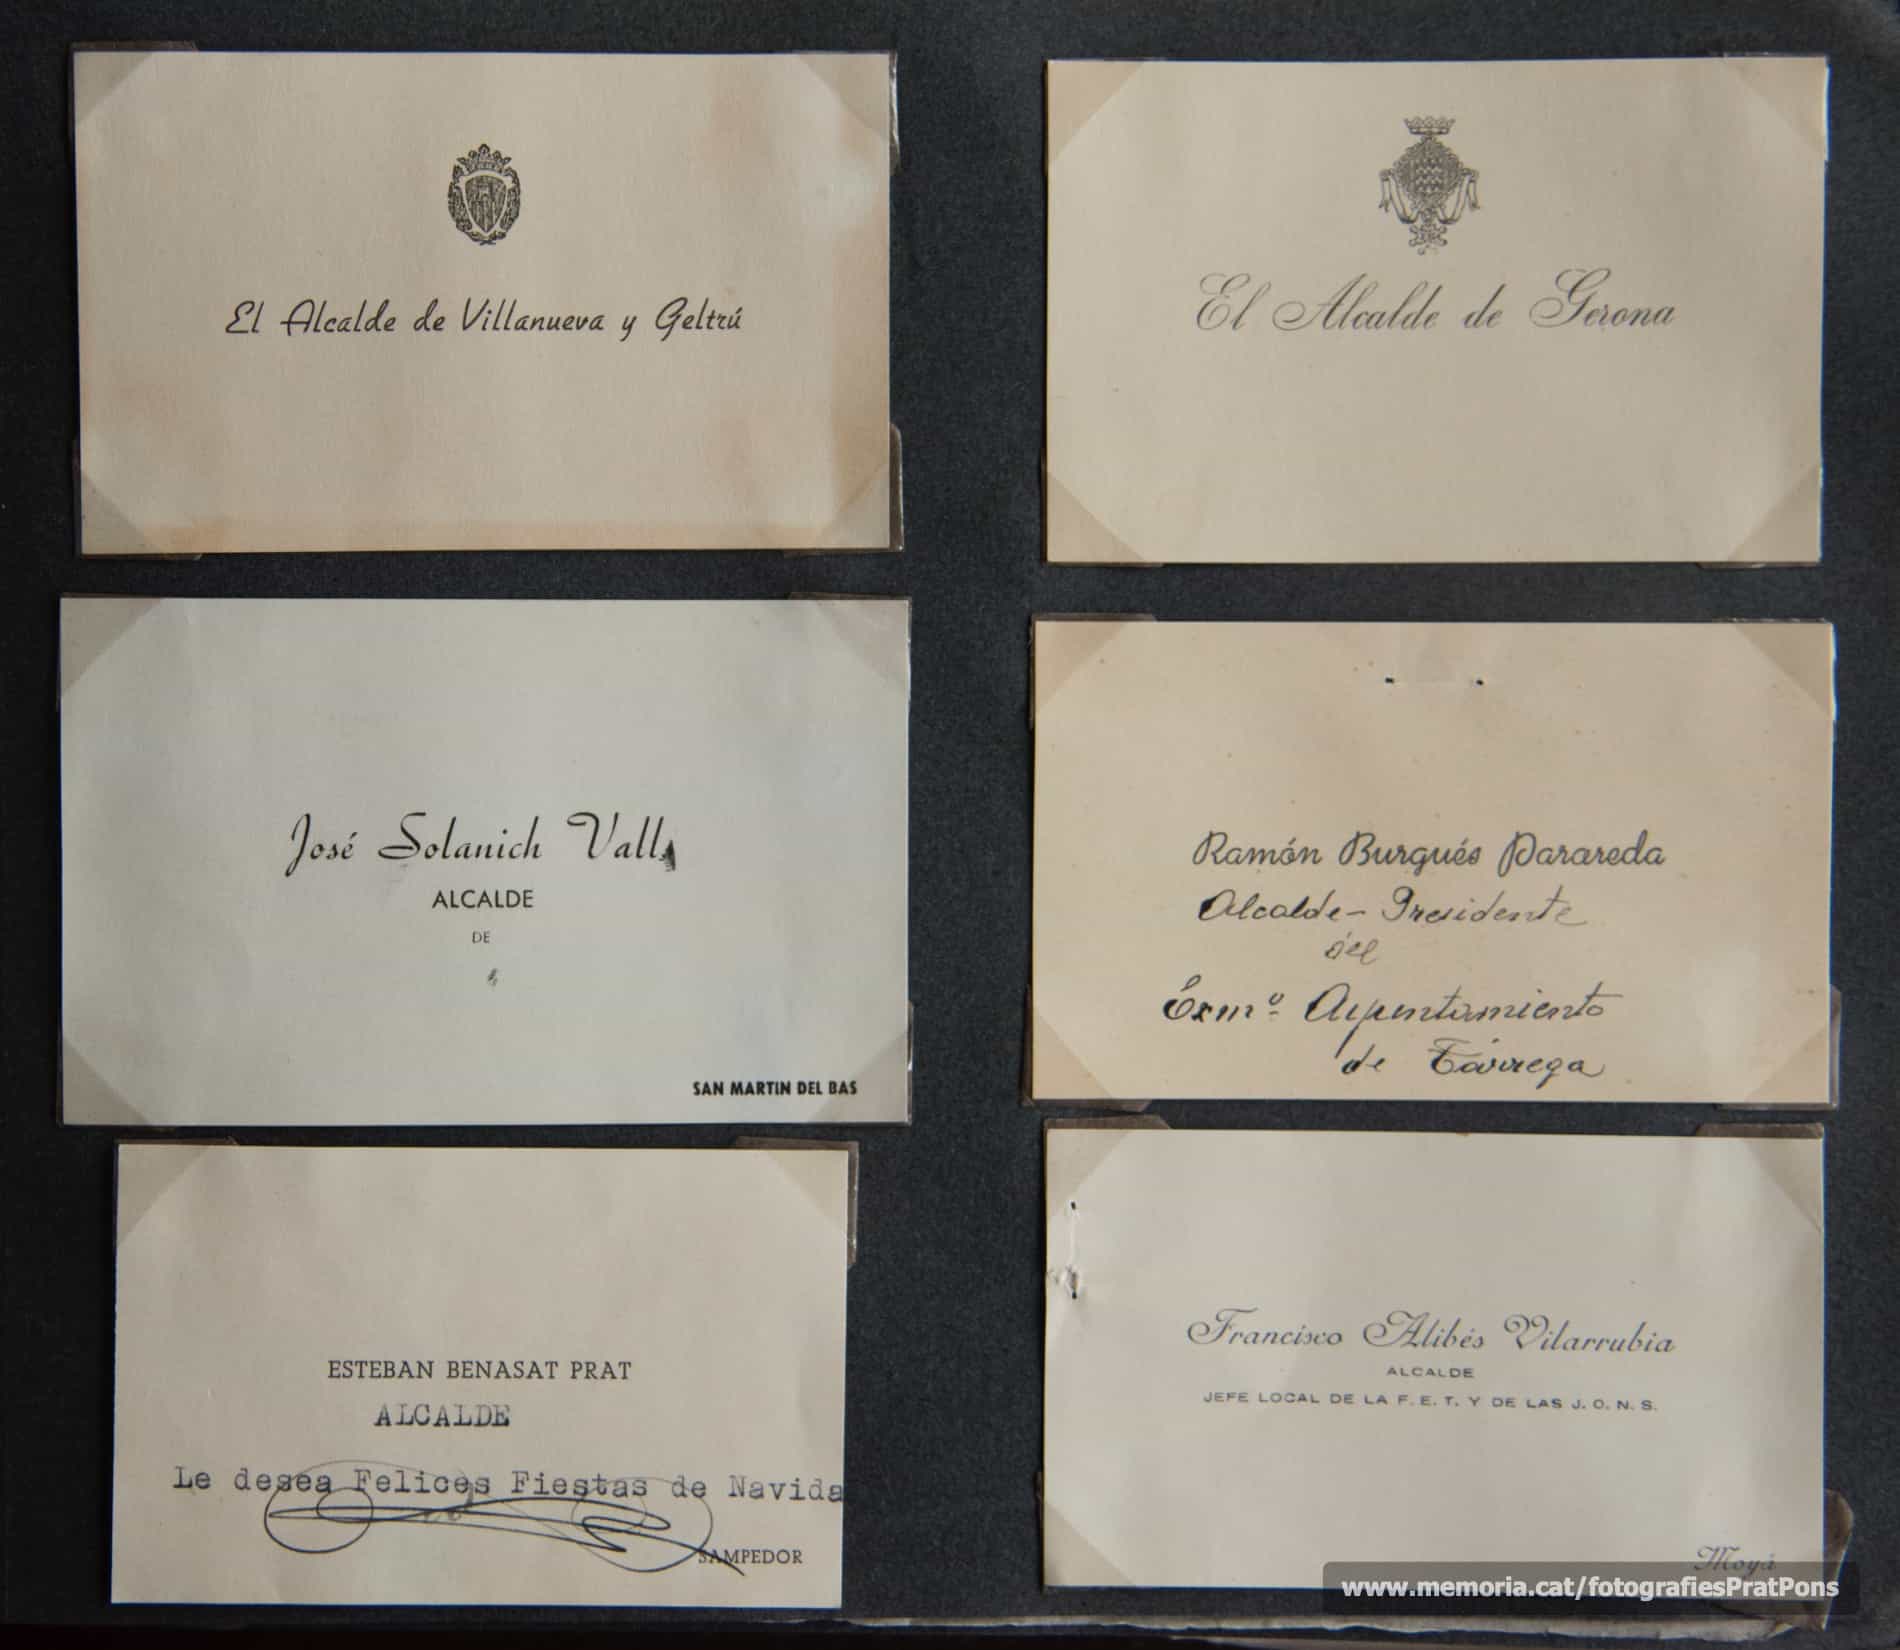 El Alcalde de Villanueva y Geltrú
El Alcalde de Gerona
José Solanich Valls
ALCALDE
DE
SAN MARTIN DEL BAS
Ramón Burgués Parareda
Alcalde - Presidente
del
Exmº Ayuntamiento
de Tárrega
ESTEBAN BENASAT PRAT
ALCALDE
Le desea Felices Fiestas de Navida
SAMPEDOR
Francisco Alibés Vilarrubia
ALCALDE
JEFE LOCAL DE LA F. E. T. Y DE LAS J. O. N. S.
Moyá
www.memoria.cat/fotografiesPratPons